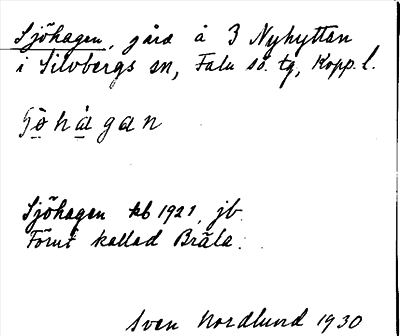 Sjöhagen, gård å 3 Nyhyttan
i Silvbergs sn, Falu sö. tg, Kopp. l.
Sjöhagen kb 1921, jb.
Förut kallad Bråla.
Sven Nordlund 1930